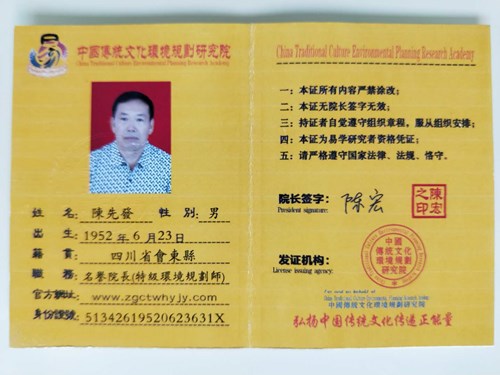 中國傳統文化環境規劃研究院
China Traditional Culture Environmental Planning Research Academy
姓 名: 陳先發 性 別: 男
出 生: 1952 年 6 月 23 日
籍 貫: 四川省會東縣
職 務: 名譽院長(特級環境規劃師)
官方網址: www.zgctwhyjy.com
身份證號: 51342619520623631X
China Traditional Culture Environmental Planning Research Academy
一: 本证所有内容严禁涂改;
二: 本证无院长签字无效;
三: 持证者自觉遵守组织章程, 服从组织安排;
四: 本证为易学研究者资格凭证;
五: 请严格遵守国家法律、法规、恪守。
院长签字: 陈宏
President signature:
陳宏之印
发证机构:
License issuing agency:
中國傳統文化環境規劃研究院
For and on behalf of
China Traditional Culture Environmental Planning Research Academy
中國傳統文化環境規劃研究院
弘扬中国传统文化传递正能量